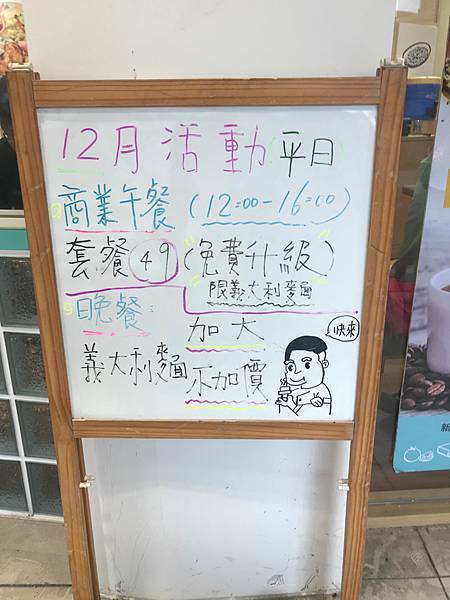 12月活動(平日)
商業午餐(12:00-16:00)
套餐49(免費升級)
限義大利麵
晚餐:
義大利麵
加大
不加價
快來
新